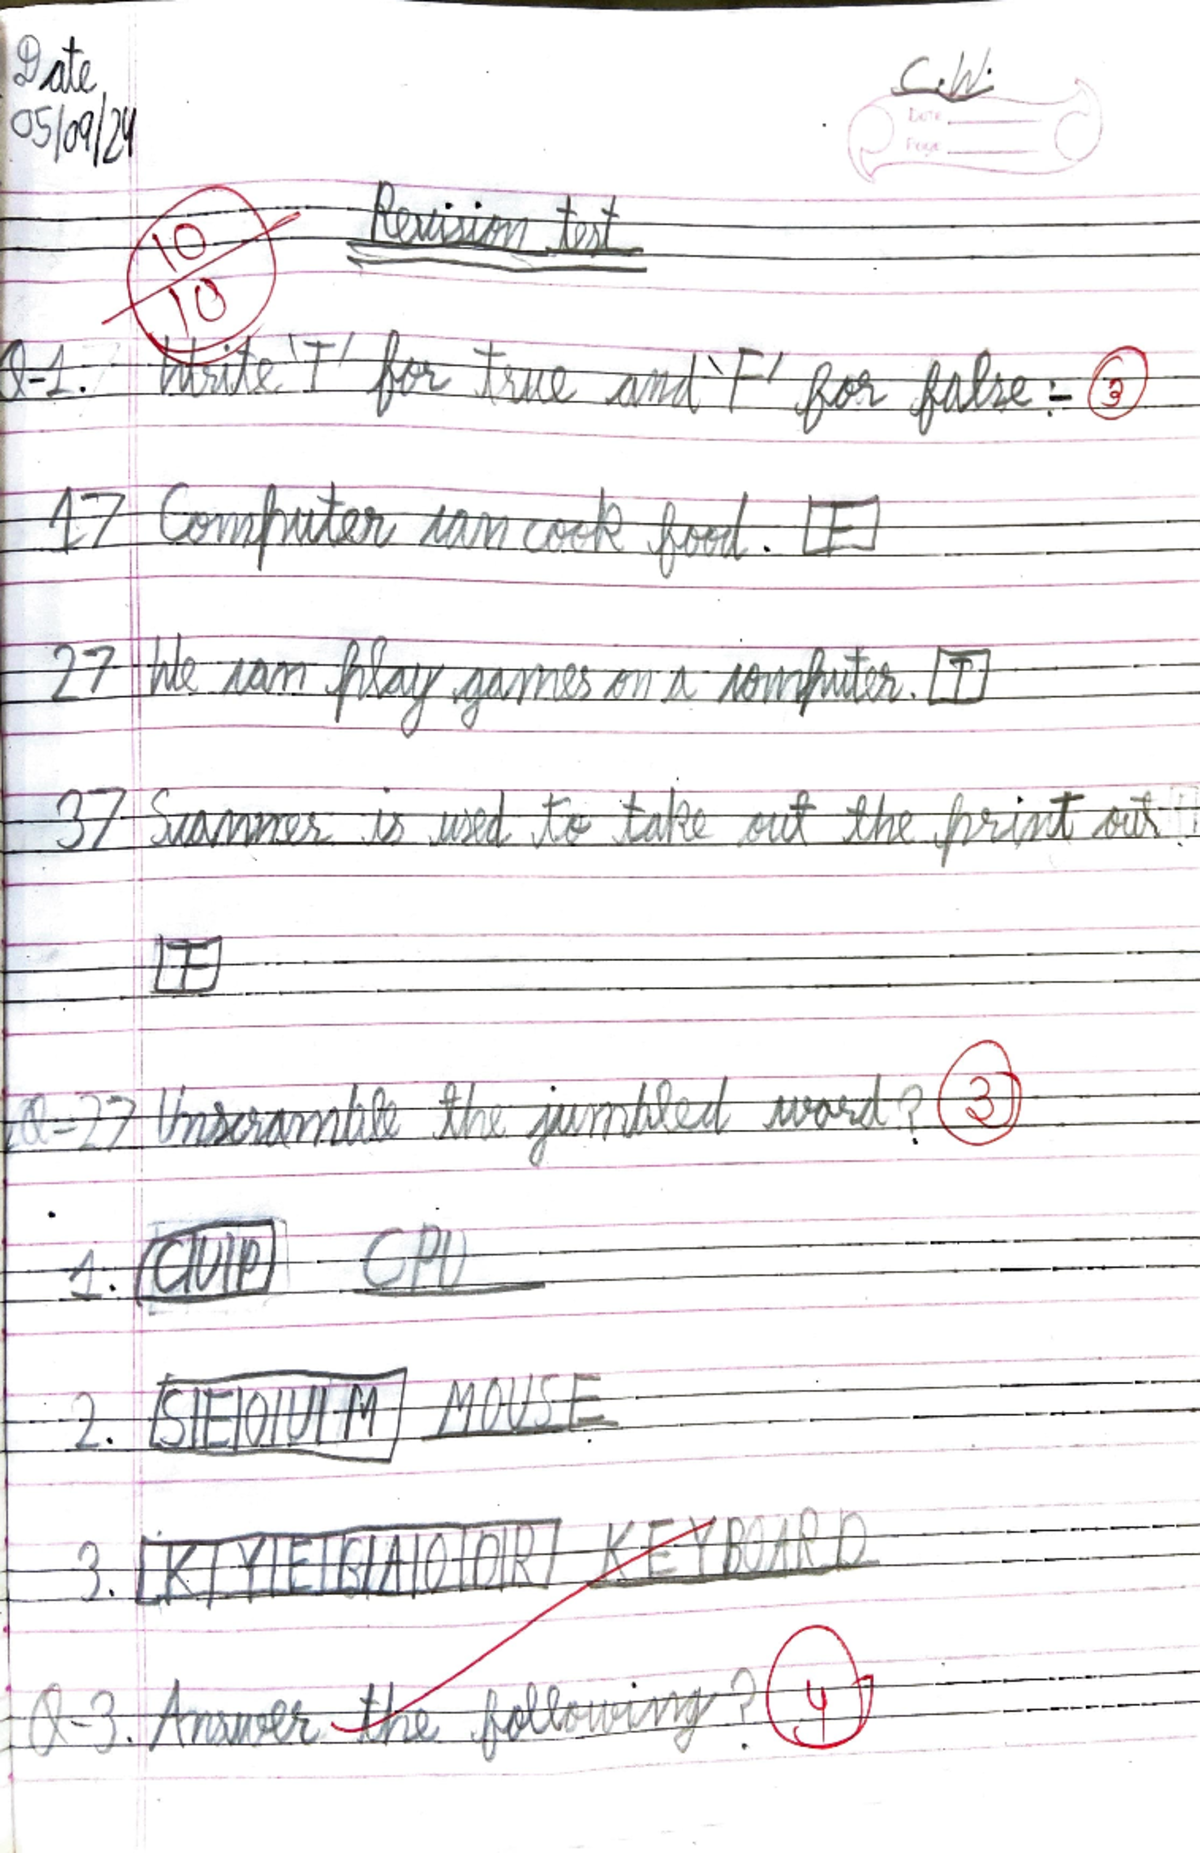 Date
05/09/24
C.W.
Date
Page
Revision test
10
10
Q-1. Write 'T' for true and 'F' for false :- 3
17 Computer can cook food. F
27 We can play games on a computer. T
37 Scanner is used to take out the print out
F
Q-27 Unscramble the jumbled word? 3
1. CUP CPU
2. SEOUM MOUSE
3. KYEBAODR KEYBOARD
Q-3. Answer the following? 4